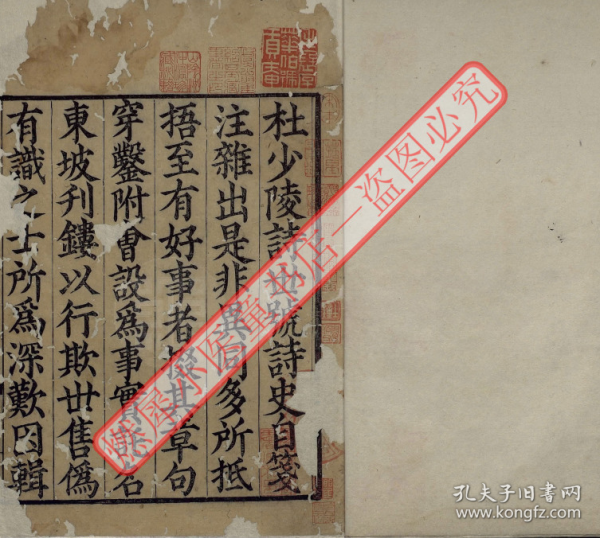 杜少陵詩世號詩史自箋
注雜出是非異同多所抵
捂至有好事者掇其章句
穿鑿附會設為事實託名
東坡刋鏤以行欺丗售偽
有識之士所為深歎因輯
盗图必究
孔夫子旧书网
www.kongfz.com